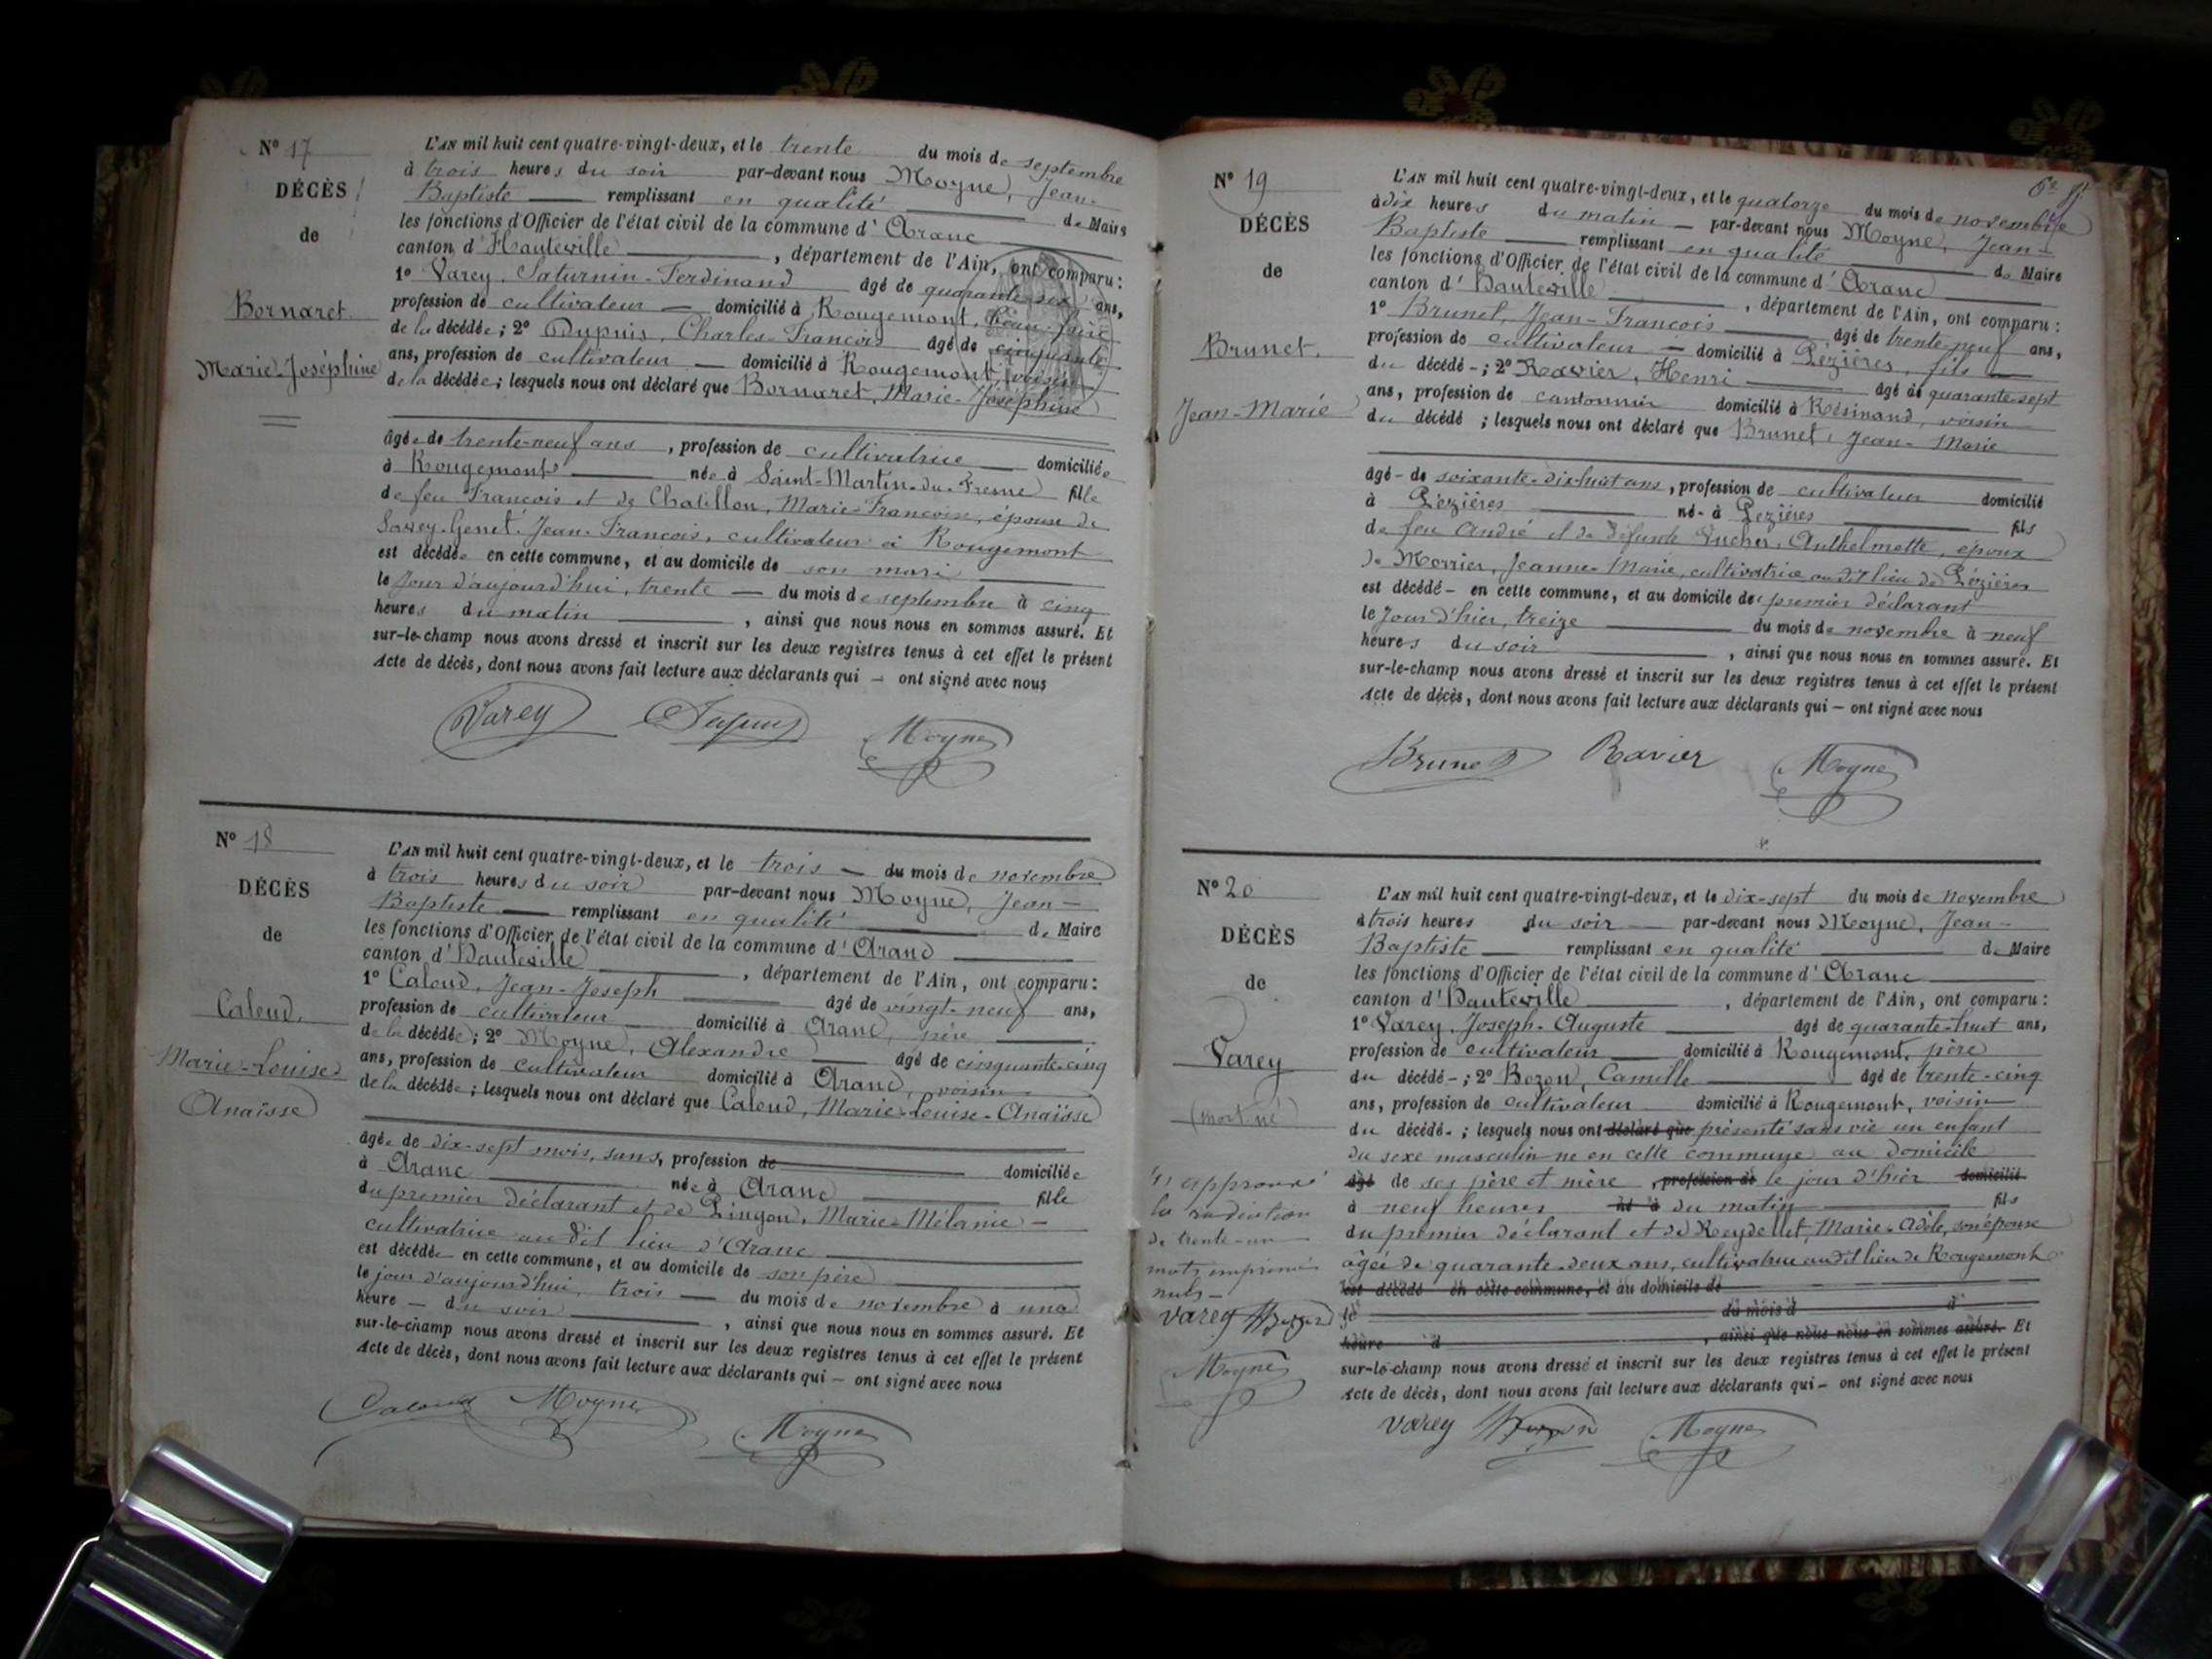 N° 17
DÉCÈS
de
Bornaret
Marie-Joséphine
L'AN mil huit cent quatre-vingt-deux, et le trente du mois de septembre
à trois heures du soir par-devant nous Moyne, Jean-
Baptiste remplissant en qualité de Maire
les fonctions d'Officier de l'état civil de la commune d'Aranc
canton d'Hauteville, département de l'Ain, ont comparu :
1° Varey, Saturnin-Ferdinand âgé de quarante-six ans,
profession de cultivateur domicilié à Rougemont, beau-frère
de la décédée ; 2° Dupuis, Charles-François âgé de cinquante
ans, profession de cultivateur domicilié à Rougemont, voisin
de la décédée ; lesquels nous ont déclaré que Bornaret, Marie-Joséphine
âgée de trente-neuf ans, profession de cultivatrice domiciliée
à Rougemont née à Saint-Martin-du-Fresne fille
de feu François et de Chatillon, Marie-Françoise, épouse de
Savey-Genet, Jean-François, cultivateur à Rougemont
est décédée en cette commune, et au domicile de son mari
le jour d'aujourd'hui, trente du mois de septembre à cinq
heures du matin, ainsi que nous nous en sommes assuré. Et
sur-le-champ nous avons dressé et inscrit sur les deux registres tenus à cet effet le présent
Acte de décès, dont nous avons fait lecture aux déclarants qui — ont signé avec nous
Varey Dupuis Moyne
N° 18
DÉCÈS
de
Caloud,
Marie-Louise
Anaïsse
L'AN mil huit cent quatre-vingt-deux, et le trois du mois de novembre
à trois heures du soir par-devant nous Moyne, Jean-
Baptiste remplissant en qualité de Maire
les fonctions d'Officier de l'état civil de la commune d'Aranc
canton d'Hauteville, département de l'Ain, ont comparu :
1° Caloud, Jean-Joseph âgé de vingt-neuf ans,
profession de cultivateur domicilié à Aranc, père
de la décédée ; 2° Moyne, Alexandre âgé de cinquante-cinq
ans, profession de cultivateur domicilié à Aranc, voisin
de la décédée ; lesquels nous ont déclaré que Caloud, Marie-Louise-Anaïsse
âgée de dix-sept mois, sans, profession de domiciliée
à Aranc née à Aranc fille
du premier déclarant et de Pingon, Marie-Mélanie
cultivatrice au dit lieu d'Aranc
est décédée en cette commune, et au domicile de son père
le jour d'aujourd'hui, trois du mois de novembre à une
heure — du soir, ainsi que nous nous en sommes assuré. Et
sur-le-champ nous avons dressé et inscrit sur les deux registres tenus à cet effet le présent
Acte de décès, dont nous avons fait lecture aux déclarants qui — ont signé avec nous
Caloud Moyne Moyne
6e ft
N° 19
DÉCÈS
de
Brunet,
Jean-Marie
L'AN mil huit cent quatre-vingt-deux, et le quatorze du mois de novembre
à dix heures du matin par-devant nous Moyne, Jean-
Baptiste remplissant en qualité de Maire
les fonctions d'Officier de l'état civil de la commune d'Aranc
canton d'Hauteville, département de l'Ain, ont comparu :
1° Brunet, Jean-François âgé de trente-neuf ans,
profession de cultivateur domicilié à Pezières, fils
du décédé ; 2° Ravier, Henri âgé de quarante-sept
ans, profession de cantonnier domicilié à Résinand, voisin
du décédé ; lesquels nous ont déclaré que Brunet, Jean-Marie
âgé de soixante-dix-huit ans, profession de cultivateur domicilié
à Pezières né à Pezières fils
de feu André et de défunte Lucher, Anthelmette, époux
de Morrier, Jeanne-Marie, cultivatrice au dit lieu de Pézières
est décédé en cette commune, et au domicile de premier déclarant
le jour d'hier, treize du mois de novembre à neuf
heures du soir, ainsi que nous nous en sommes assuré. Et
sur-le-champ nous avons dressé et inscrit sur les deux registres tenus à cet effet le présent
Acte de décès, dont nous avons fait lecture aux déclarants qui — ont signé avec nous
Brunet Ravier Moyne
N° 20
DÉCÈS
de
Varey
(mort né)
L'AN mil huit cent quatre-vingt-deux, et le dix-sept du mois de novembre
à trois heures du soir par-devant nous Moyne, Jean-
Baptiste remplissant en qualité de Maire
les fonctions d'Officier de l'état civil de la commune d'Aranc
canton d'Hauteville, département de l'Ain, ont comparu :
1° Varey, Joseph-Auguste âgé de quarante-huit ans,
profession de cultivateur domicilié à Rougemont, père
du décédé ; 2° Bozon, Camille âgé de trente-cinq
ans, profession de cultivateur domicilié à Rougemont, voisin
du décédé ; lesquels nous ont déclaré que présenté sans vie un enfant
du sexe masculin né en cette commune au domicile
âgé de ses père et mère, profession de le jour d'hier domicilié
à neuf heures né à du matin fils
du premier déclarant et de Reydellet, Marie-Adèle, son épouse
âgée de quarante-deux ans, cultivatrice au dit lieu de Rougemont
est décédé en cette commune, et au domicile de
le du mois d à
heure d, ainsi que nous nous en sommes assuré. Et
sur-le-champ nous avons dressé et inscrit sur les deux registres tenus à cet effet le présent
Acte de décès, dont nous avons fait lecture aux déclarants qui — ont signé avec nous
Varey Bozon Moyne
approuvé
la radiation
de trente-un
mots imprimés
nuls
Varey Bozon
Moyne